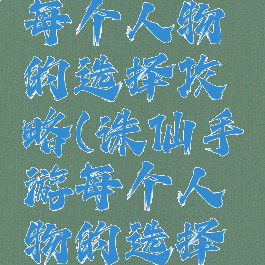 每个人物
的选择攻
略(诛仙手
游每个人
物的选择